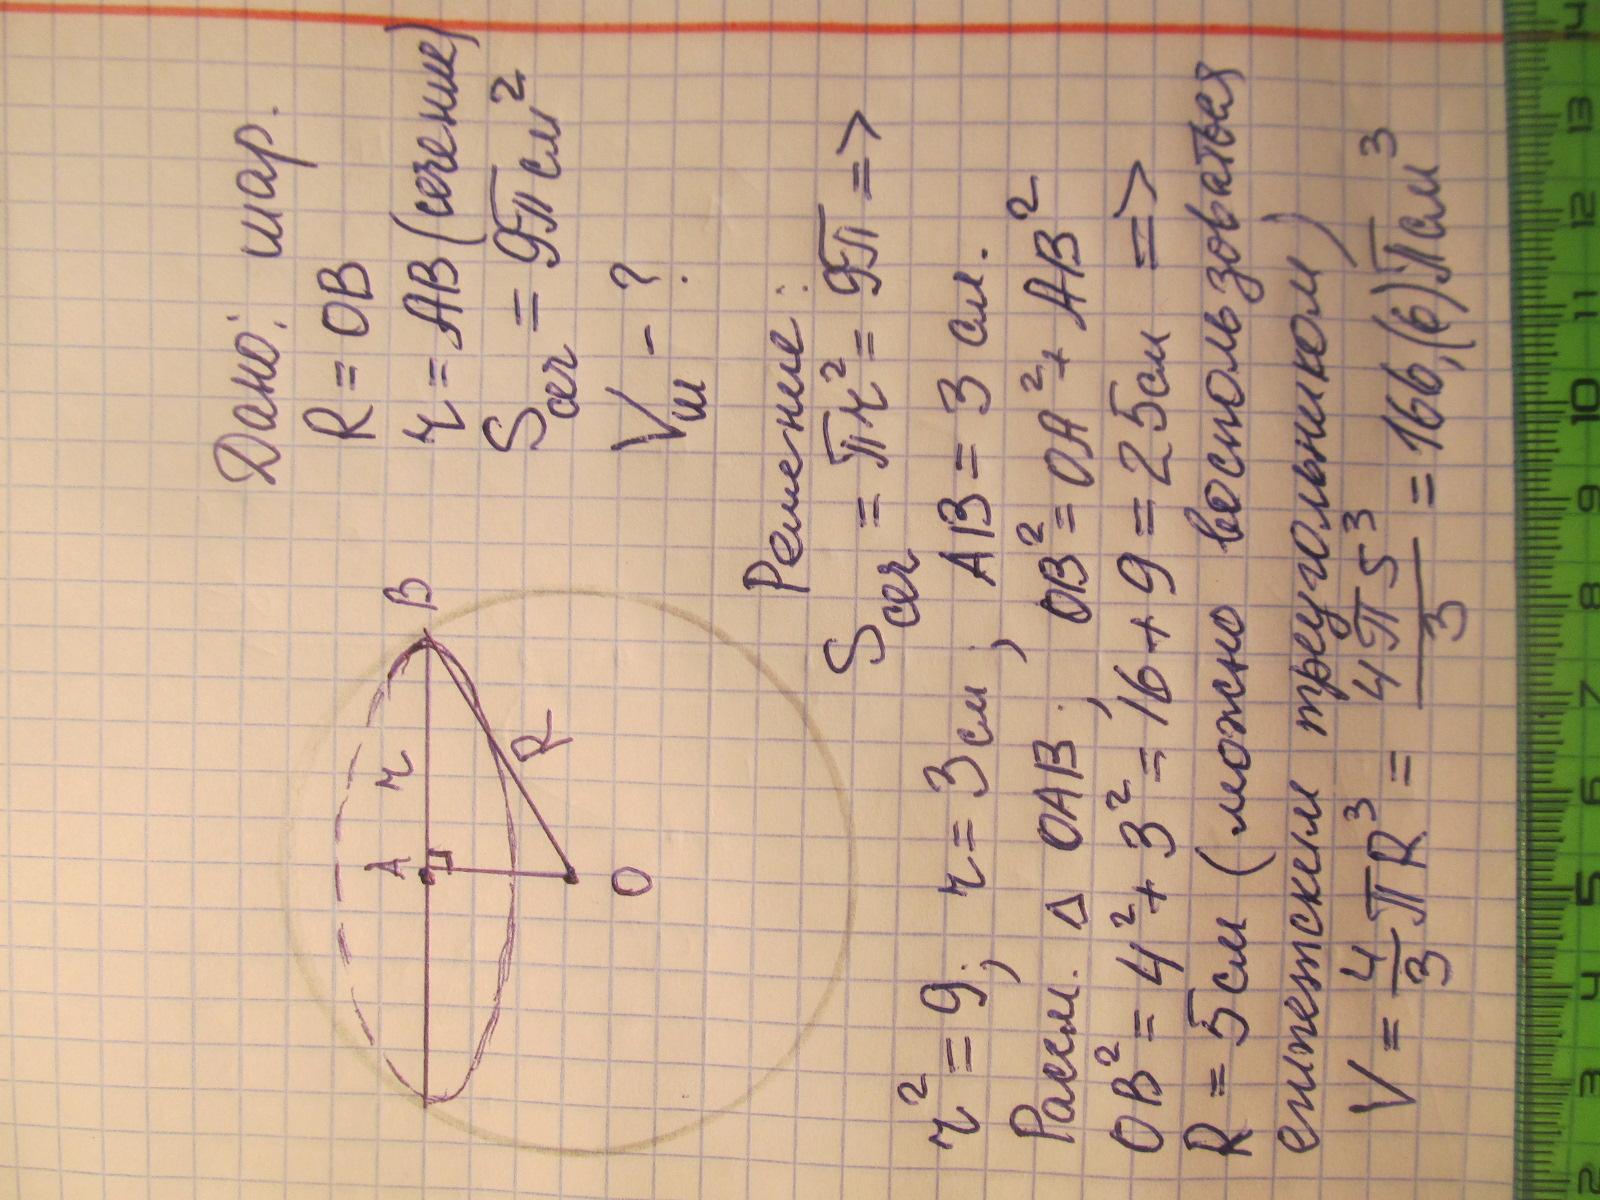 Дано: шар.
R = OB
r = AB (сечение)
Sсеч = 9π см²
Vш - ?
A
r
B
R
O
Решение:
Sсеч = πr² = 9π =>
r² = 9; r = 3 см; AB = 3 см.
Рассм. △ OAB; OB² = OA² + AB²
OB² = 4² + 3² = 16 + 9 = 25 см =>
R = 5 см (можно воспользоваться
египетским треугольником)
V = 4/3 πR³ = 4π5³/3 = 166,(6)π см³
2 3 4 5 6 7 8 9 10 11 12 13 14